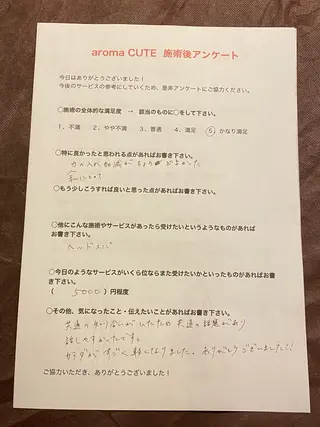 aroma CUTE 施術後アンケート
今日はありがとうございました！
今後のサービスの参考にしていくため、是非アンケートにご協力ください。
○施術の全体的な満足度 → 該当のものに○をして下さい。
1、不満 2、やや不満 3、普通 4、満足 5 かなり満足
○特に良かったと思われる点があればお書き下さい。
力の入れ加減がちょうどよかった
○もう少しこうすれば良いと思った点があればお書き下さい。
○他にこんな施術やサービスがあったら受けたいというようなものがあれば
お書き下さい。
ヘッドスパ
○今日のようなサービスがいくら位ならまた受けたいかといったものがあればお書
き下さい。
（ 5000 ）円程度
○その他、気になったこと・伝えたいことがあればお書き下さい。
共通の知り合いがいたため共通の話題があり
話しやすかったです。
カラダがすごく軽くなりました。ありがとうございました!!
ご協力いただき、ありがとうございました！